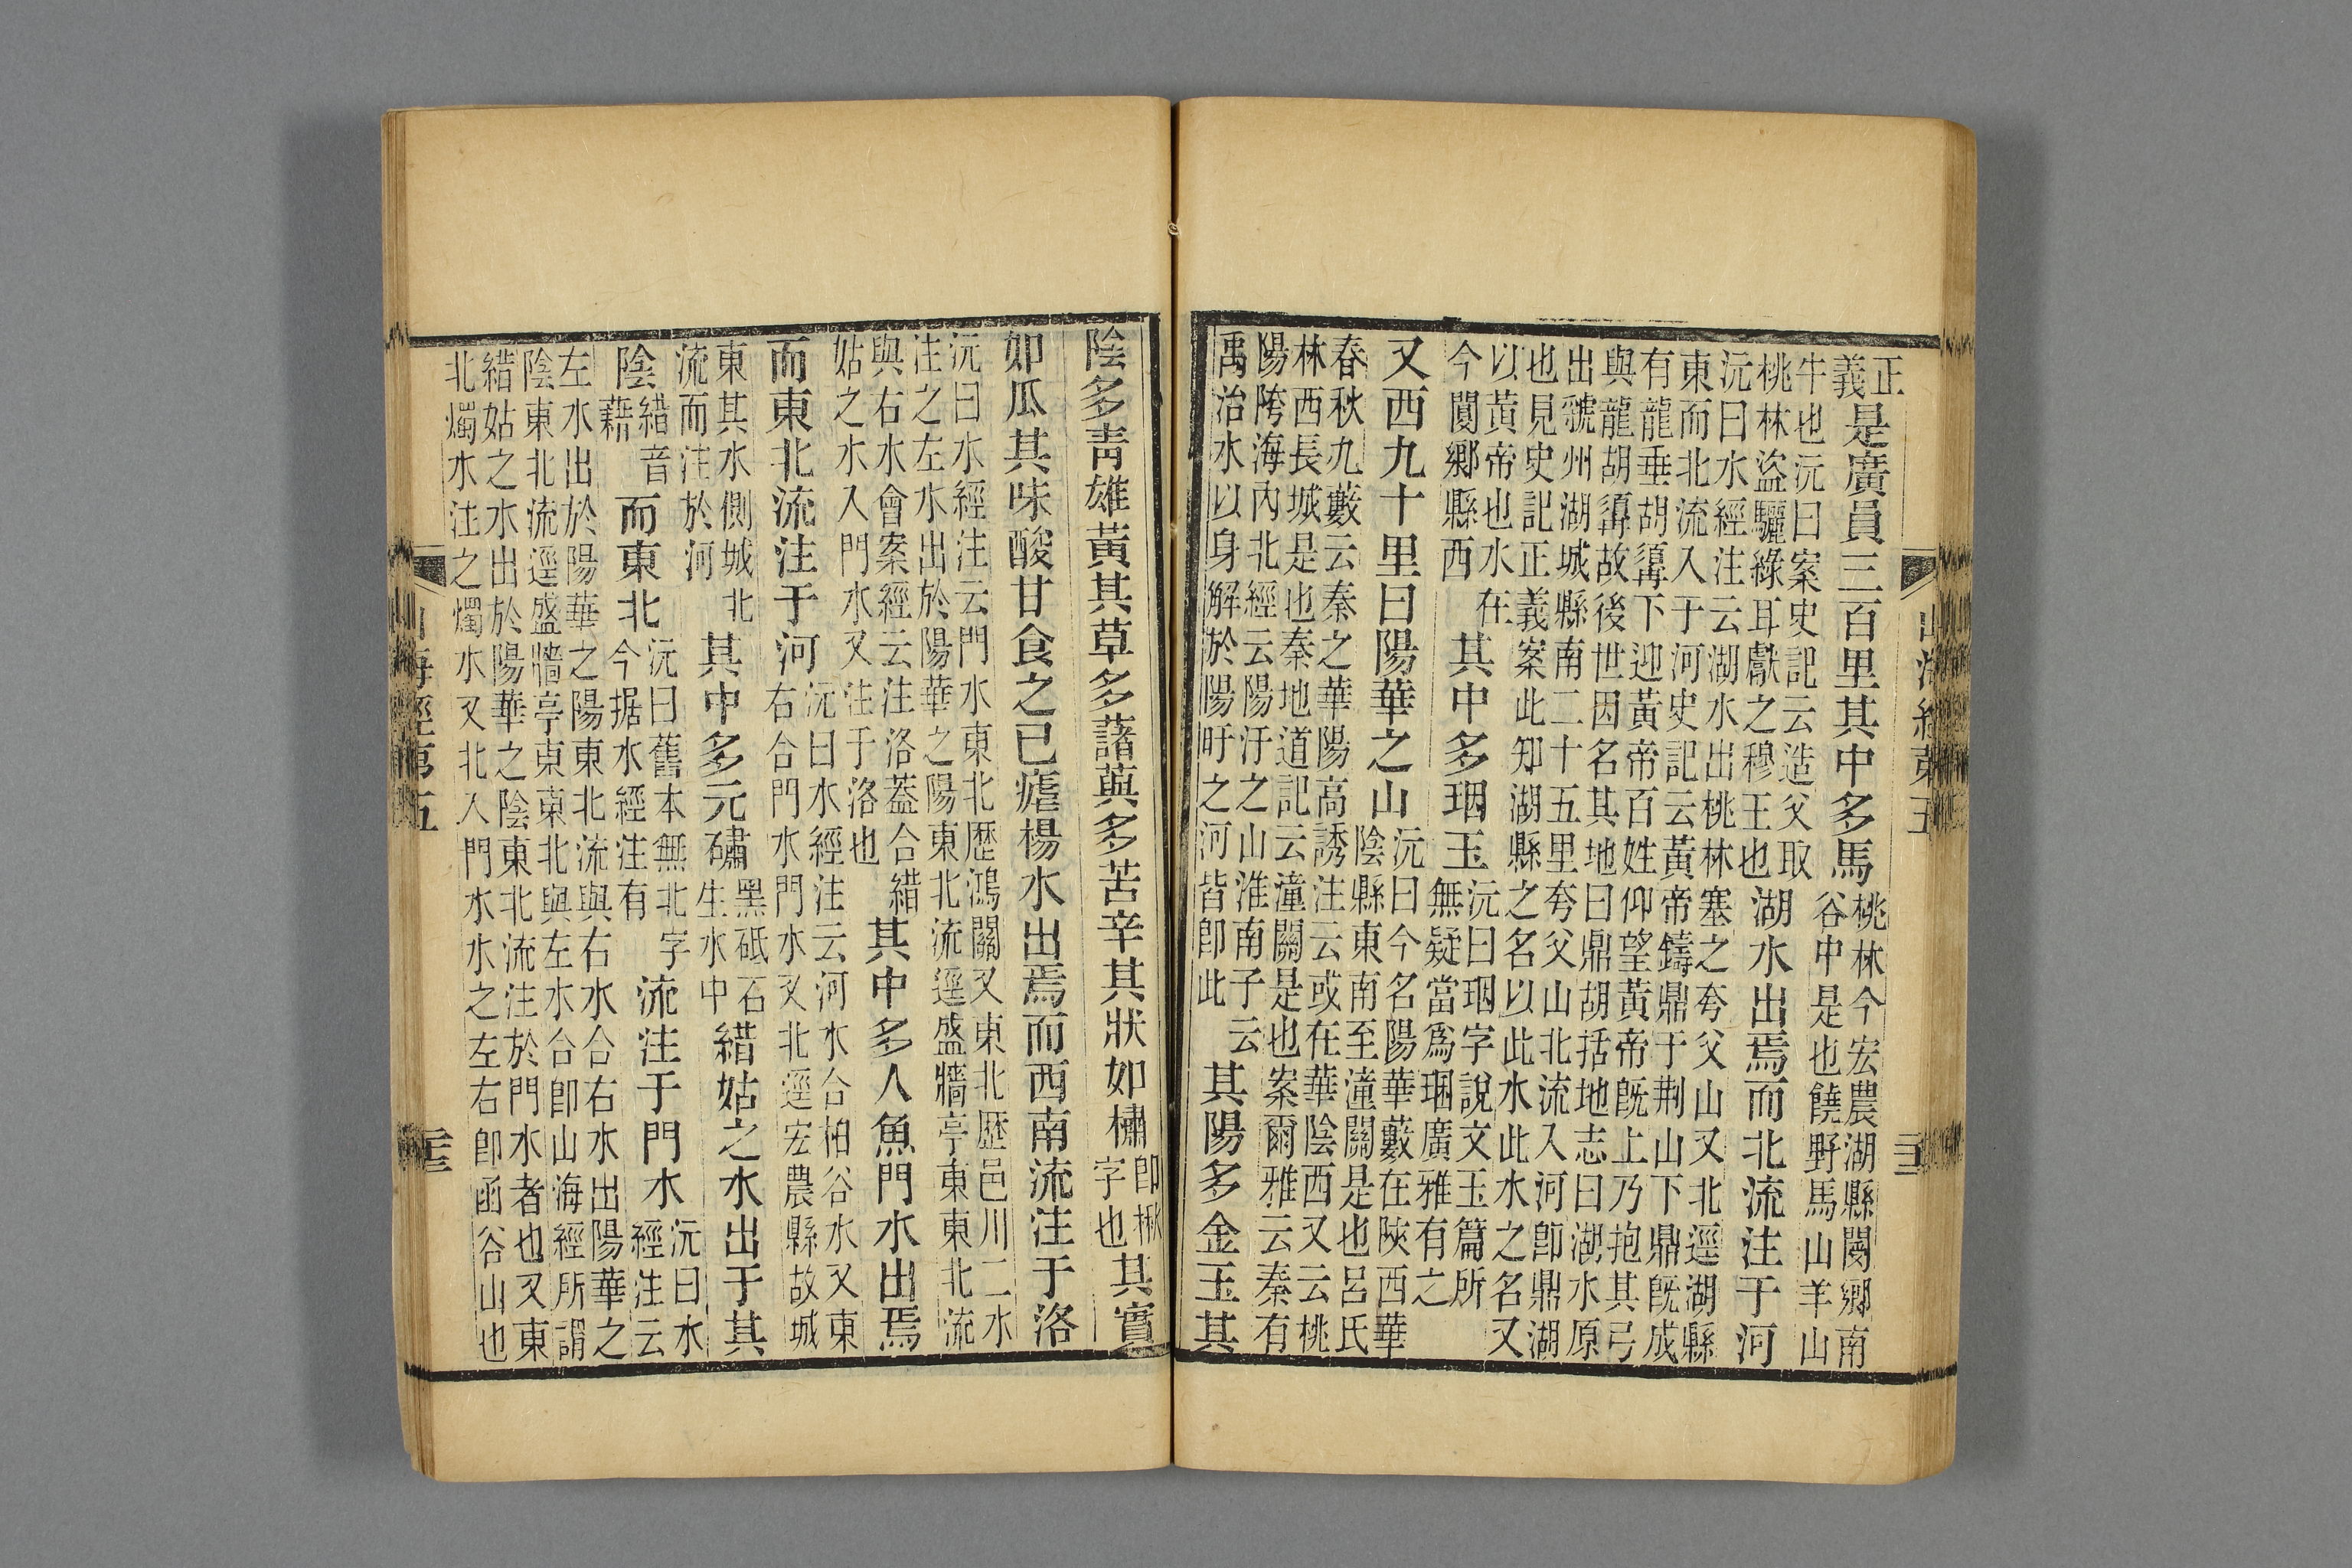 正義是廣員三百里其中多馬桃林今宏農湖縣閿鄉南谷中是也饒野馬山羊山
牛也沅曰案史記云造父取桃林盜驪綠耳獻之穆王也湖水出焉而北流注于河
沅曰水經注云湖水出桃林塞之夸父山又北逕湖縣
東而北流入于河史記云黃帝鑄鼎于荆山下鼎旣成
有龍垂胡下迎黃帝百姓仰望黃帝旣上乃抱其弓
與龍胡故後世因名其地曰鼎胡括地志曰湖水原
出虢州湖城縣南二十五里夸父山北流入河卽鼎湖
也見史記正義案此知湖縣之名以此水此水之名又
以黃帝也水在今閿鄉縣西其中多珚玉沅曰珚字說文玉篇所無疑當爲琱廣雅有之
又西九十里曰陽華之山沅曰今名陽華藪在陝西華陰縣東南至潼關是也呂氏
春秋九藪云秦之華陽高誘注云或在華陰西又云桃
林西長城是也秦地道記云潼關是也案爾雅云秦有
陽陓海內北經云陽汙之山淮南子云禹治水以身解於陽盱之河皆卽此其陽多金玉其
陰多青雄黃其草多藷藇多苦辛其狀如橚卽楸字也其實
如瓜其味酸甘食之已瘧楊水出焉而西南流注于洛
沅曰水經注云門水東北歷鴻關又東北歷邑川二水
注之左水出於陽華之陽東北流逕盛牆亭東東北流
與右水會案經云注洛葢合緒姑之水入門水又注于洛也其中多人魚門水出焉
而東北流注于河沅曰水經注云河水合柏谷水又東右合門水門水又北逕宏農縣故城
東其水側城北流而注於河其中多元䃤黑砥石生水中緒姑之水出于其
陰緒音藉而東北沅曰舊本無北字今据水經注有流注于門水沅曰水經注云
左水出於陽華之陽東北流與右水合右水出陽華之
陰東北流逕盛牆亭東東北與左水合卽山海經所謂
緒姑之水出於陽華之陰東北流注於門水者也又東
北燭水注之燭水又北入門水水之左右卽函谷山也
山海經第五
三三